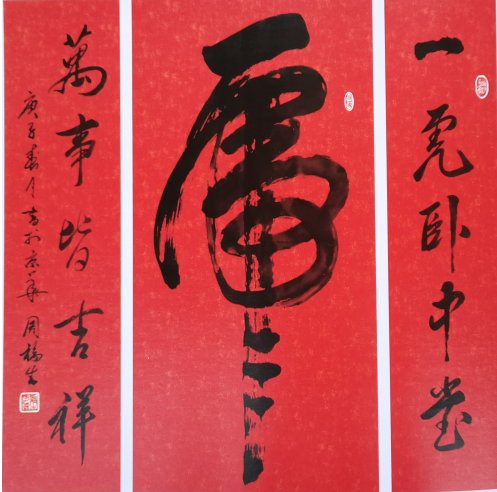 一虎卧中堂
虎
萬事皆吉祥
庚子春月書於京華 周 生